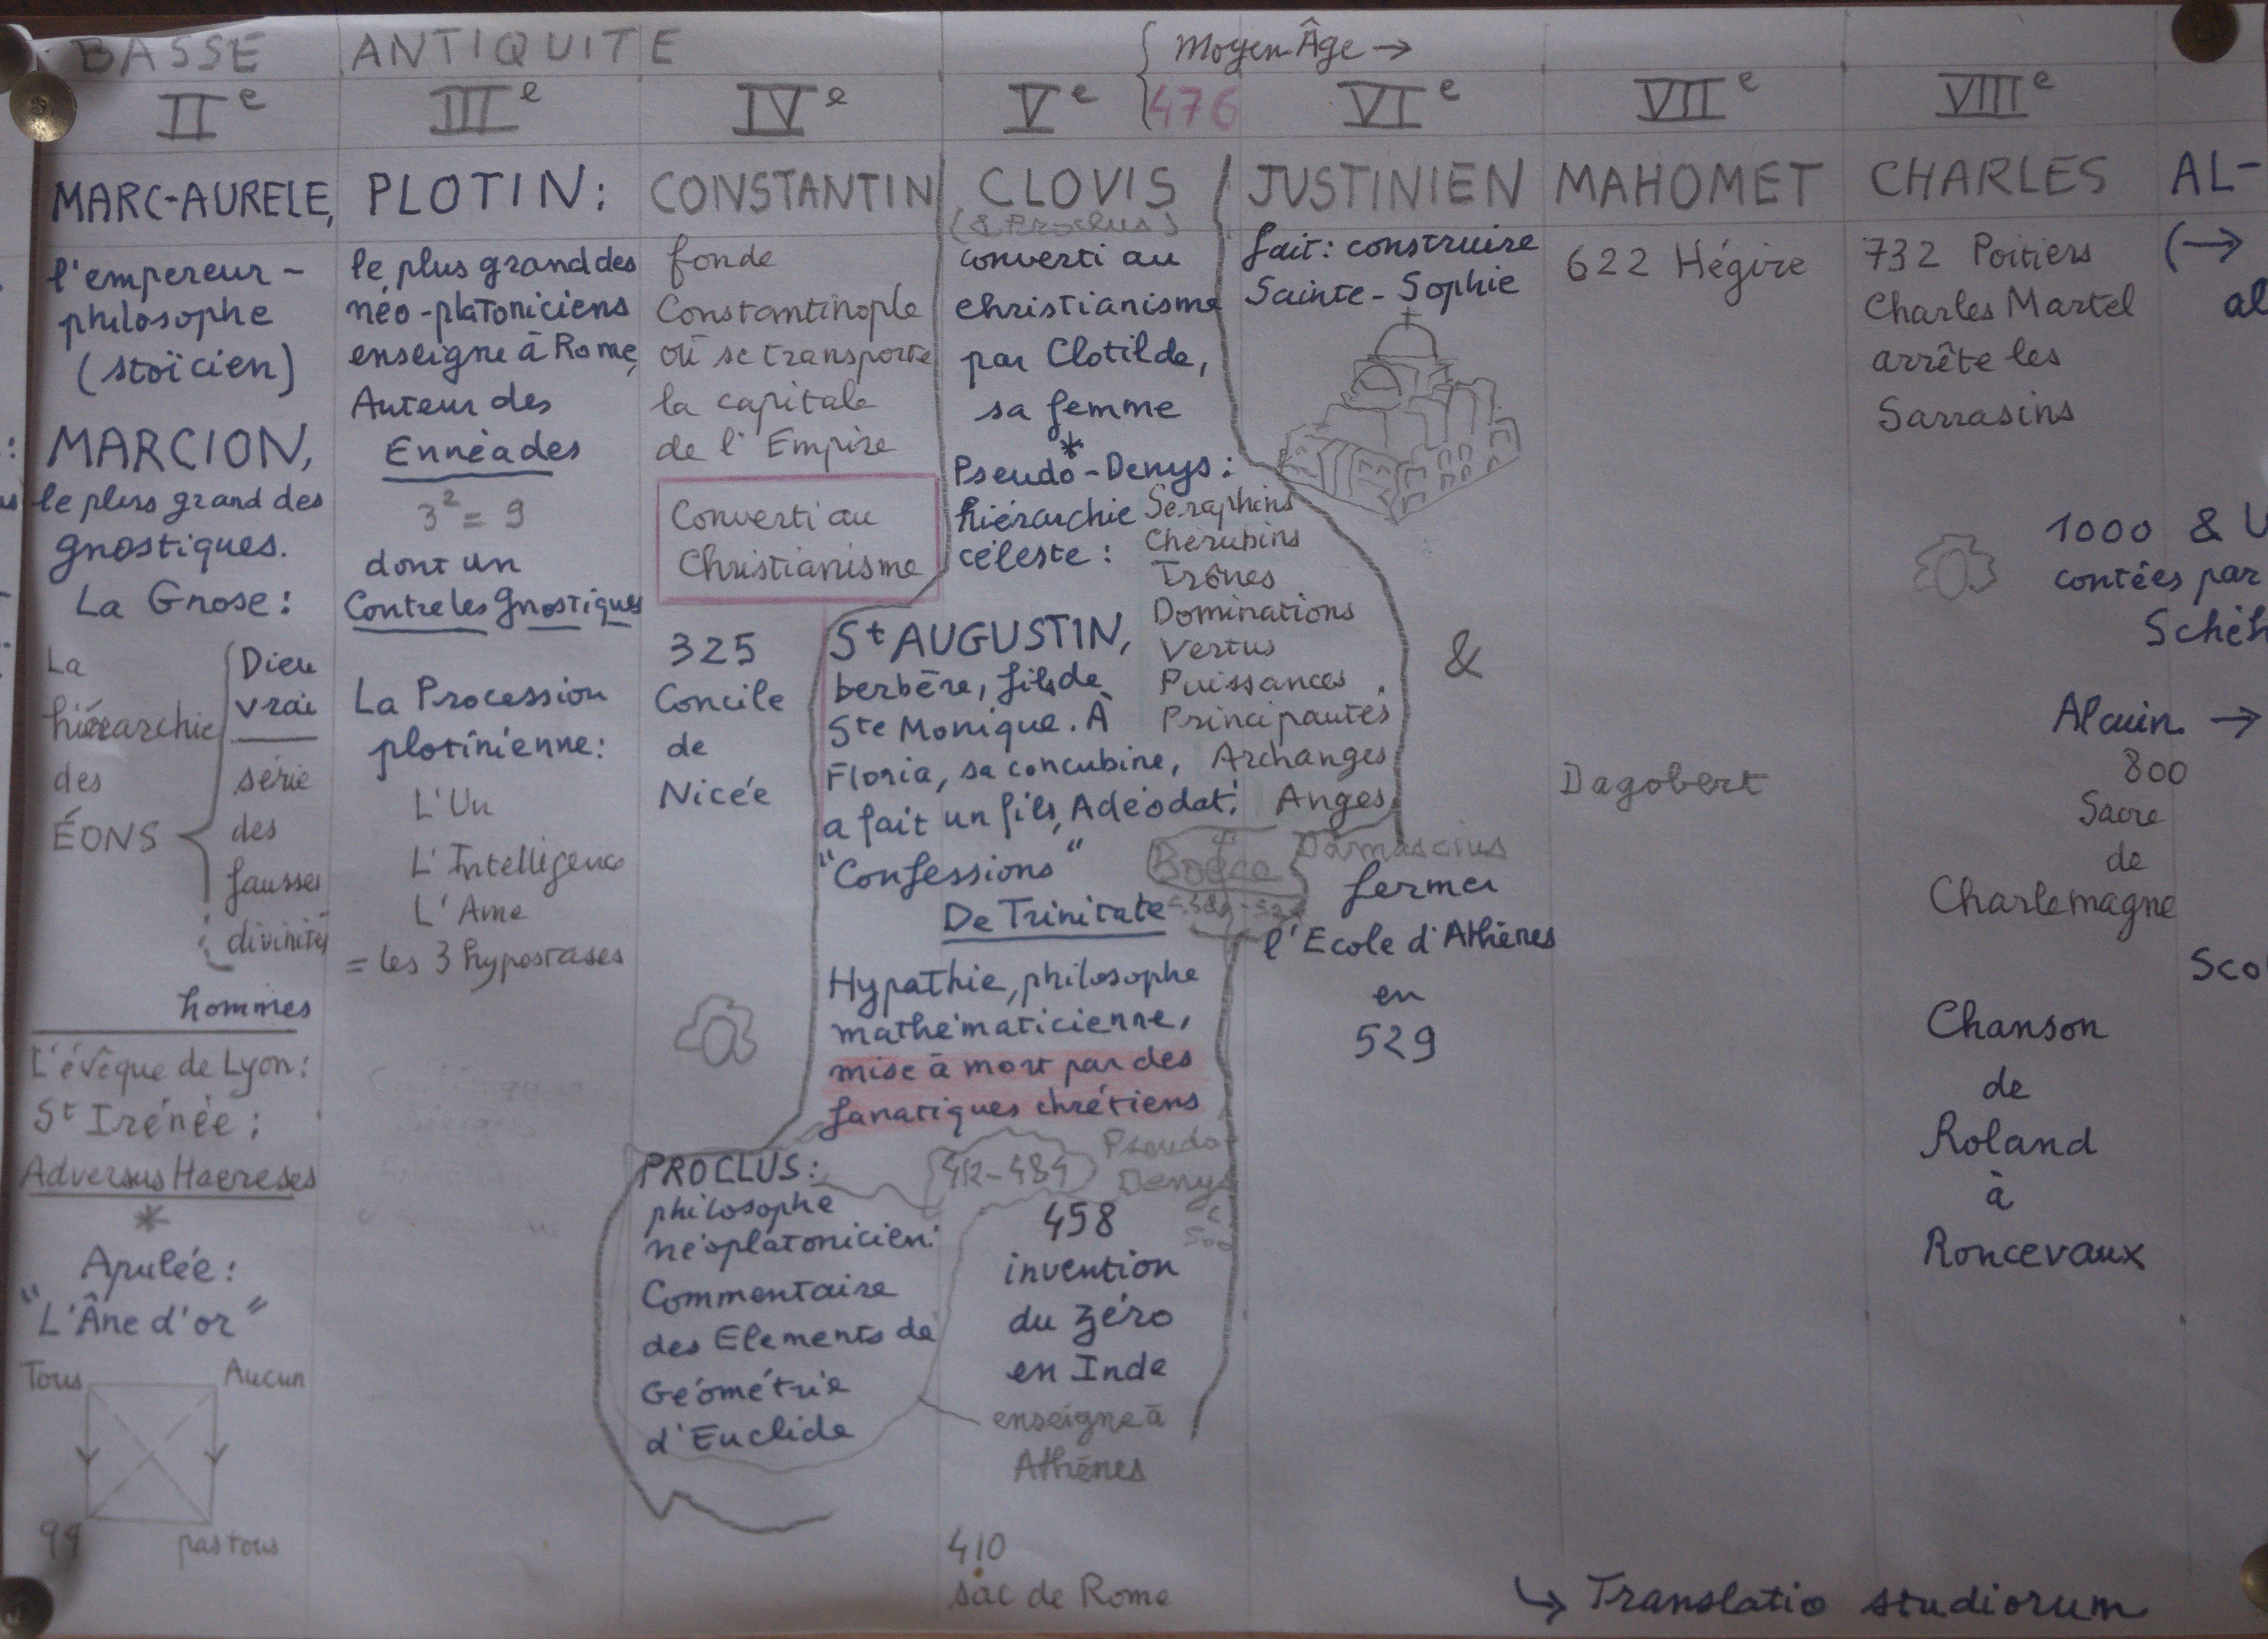 BASSE ANTIQUITE
{ Moyen-Âge →
IIe
IIIe
IVe
Ve
476
VIe
VIIe
VIIIe
MARC-AURELE,
l'empereur-
philosophe
(stoïcien)
MARCION,
le plus grand des
gnostiques.
La Gnose:
La
hiérarchie
des
ÉONS
Dieu
vrai
série
des
fausses
divinités
hommes
L'évêque de Lyon:
St Irénée:
Adversus Haereses
*
Apulée:
"L'Âne d'or"
Tous Aucun
qq pas tous
PLOTIN:
le plus grand des
néo-platoniciens
enseigne à Rome,
Auteur des
Ennéades
3² = 9
dont un
Contre les Gnostiques
La Procession
plotinienne:
L'Un
L'Intelligence
L'Ame
= les 3 hypostases
CONSTANTIN
fonde
Constantinople
où se transporte
la capitale
de l'Empire
Converti au
Christianisme
325
Concile
de
Nicée
PROCLUS:
philosophe
néoplatonicien:
Commentaire
des Elements de
Géométrie
d'Euclide
CLOVIS
(& Proclus)
converti au
christianisme
par Clotilde,
sa femme
*
Pseudo-Denys:
hiérarchie
céleste:
Séraphins
Chérubins
Trônes
Dominations
Vertus
Puissances
Principautés
Archanges
Anges
St AUGUSTIN,
berbère, fils de
Ste Monique. À
Floria, sa concubine,
a fait un fils, Adéodat.
"Confessions"
De Trinitate
Boèce
Hypathie, philosophe
mathématicienne,
mise à mort par des
fanatiques chrétiens
412-484
Pseudo-
Denys
c
500
458
invention
du zéro
en Inde
enseigne à
Athènes
410
sac de Rome
JUSTINIEN
fait: construire
Sainte-Sophie
&
Damascius
fermer
l'Ecole d'Athènes
en
529
MAHOMET
622 Hégire
Dagobert
CHARLES
732 Poitiers
Charles Martel
arrête les
Sarrasins
1000 & U
contées par
Schéh
Alcuin →
800
Sacre
de
Charlemagne
Chanson
de
Roland
à
Roncevaux
AL-
(→
al
Sco
↳ Translatio studiorum